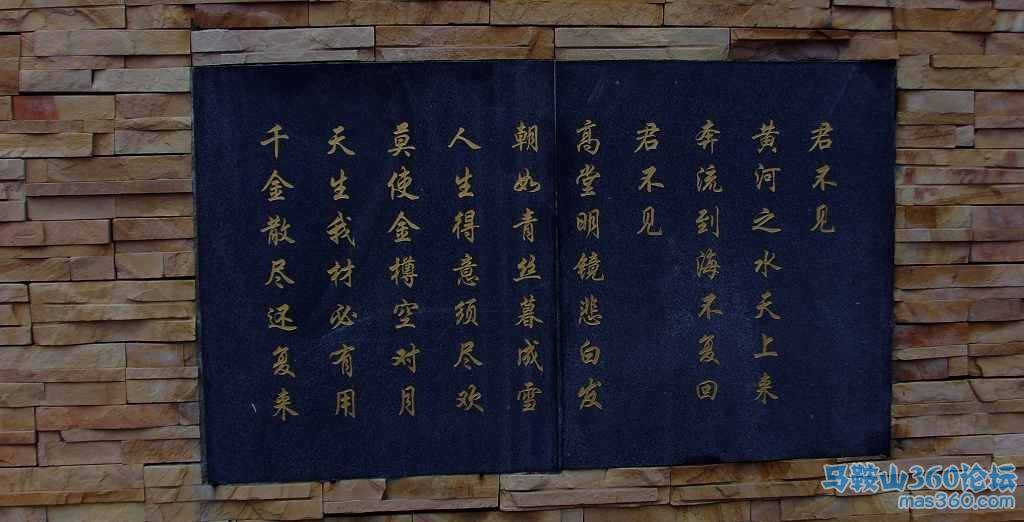 君不见
黄河之水天上来
奔流到海不复回
君不见
高堂明镜悲白发
朝如青丝暮成雪
人生得意须尽欢
莫使金樽空对月
天生我材必有用
千金散尽还复来
马鞍山360论坛
mas360.com